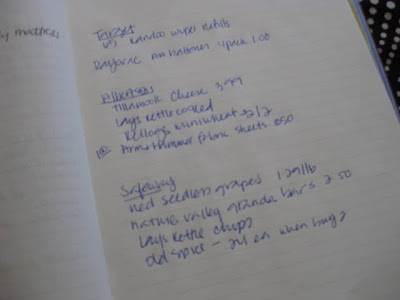 Target
Kandoo wipes Refills
Rayovac 4 pack 1.00
Albertsons
Tillamook Cheese 3.99
Lays Kettle Cooked
Kellogg miniwheats 2/2
Arm + Hammer fabric sheets
Safeway
Red Seedless grapes 1.29/lb
nature valley granola bars 2.50
Lays Kettle Chips
old spice - ea when buy 2